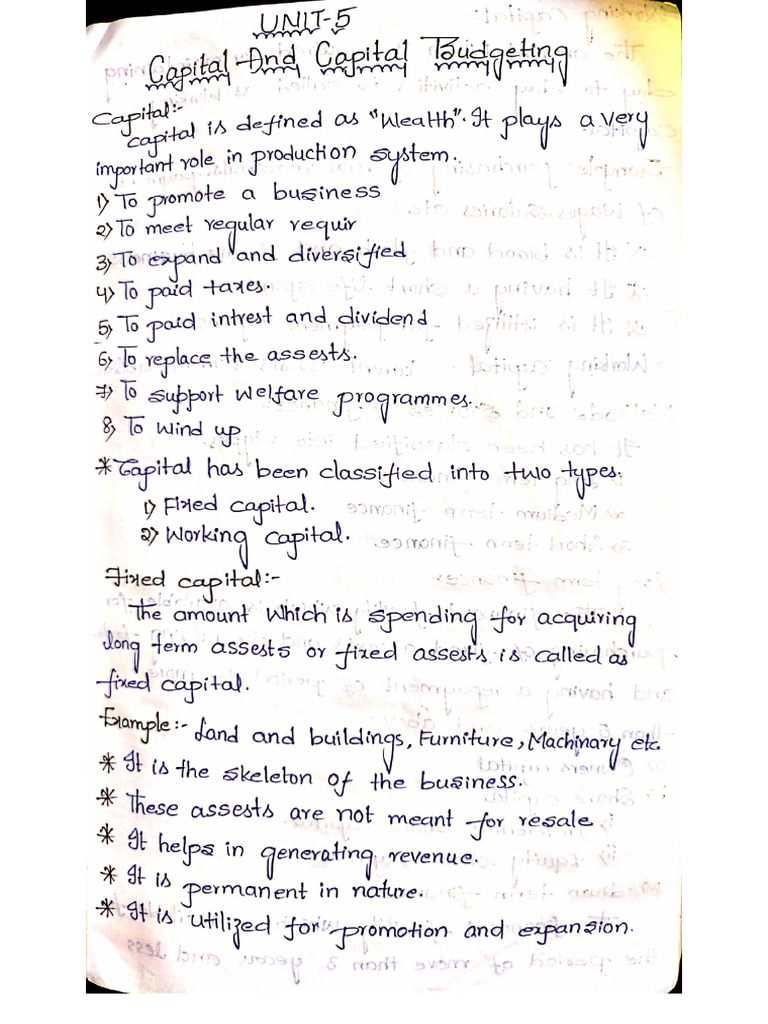 UNIT-5
Capital And Capital Budgeting
Capital:-
capital is defined as "Wealth". It plays a very
important role in production system.
1) To promote a business
2) To meet regular requir
3) To expand and diversified
4) To paid taxes.
5) To paid intrest and dividend
6) To replace the assests.
7) To support welfare programmes.
8) To wind up
* Capital has been classified into two types.
1) Fixed capital.
2) Working capital.
Fixed capital:-
The amount which is spending for acquiring
long term assests or fixed assests is called as
fixed capital.
Example:- Land and buildings, Furniture, Machinary etc
* It is the skeleton of the business.
* These assests are not meant for resale
* It helps in generating revenue.
* It is permanent in nature.
* It is utilized for promotion and expansion.